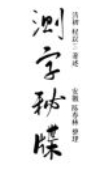 測字秘牒
清朝 程省 著述
安徽 陈春林 整理